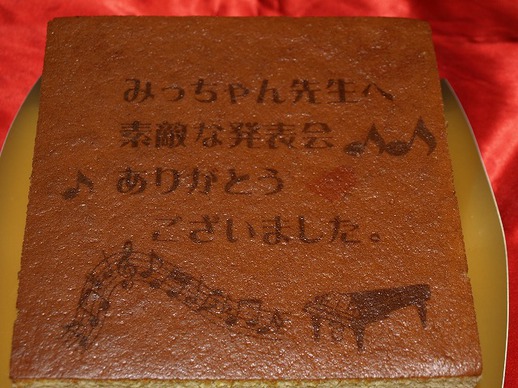 みっちゃん先生へ
素敵な発表会
ありがとう
ございました。